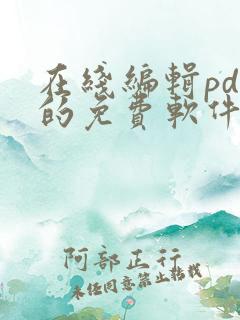 在綫編輯pd
的免費軟件
阿部正行
未經同意禁止轉載